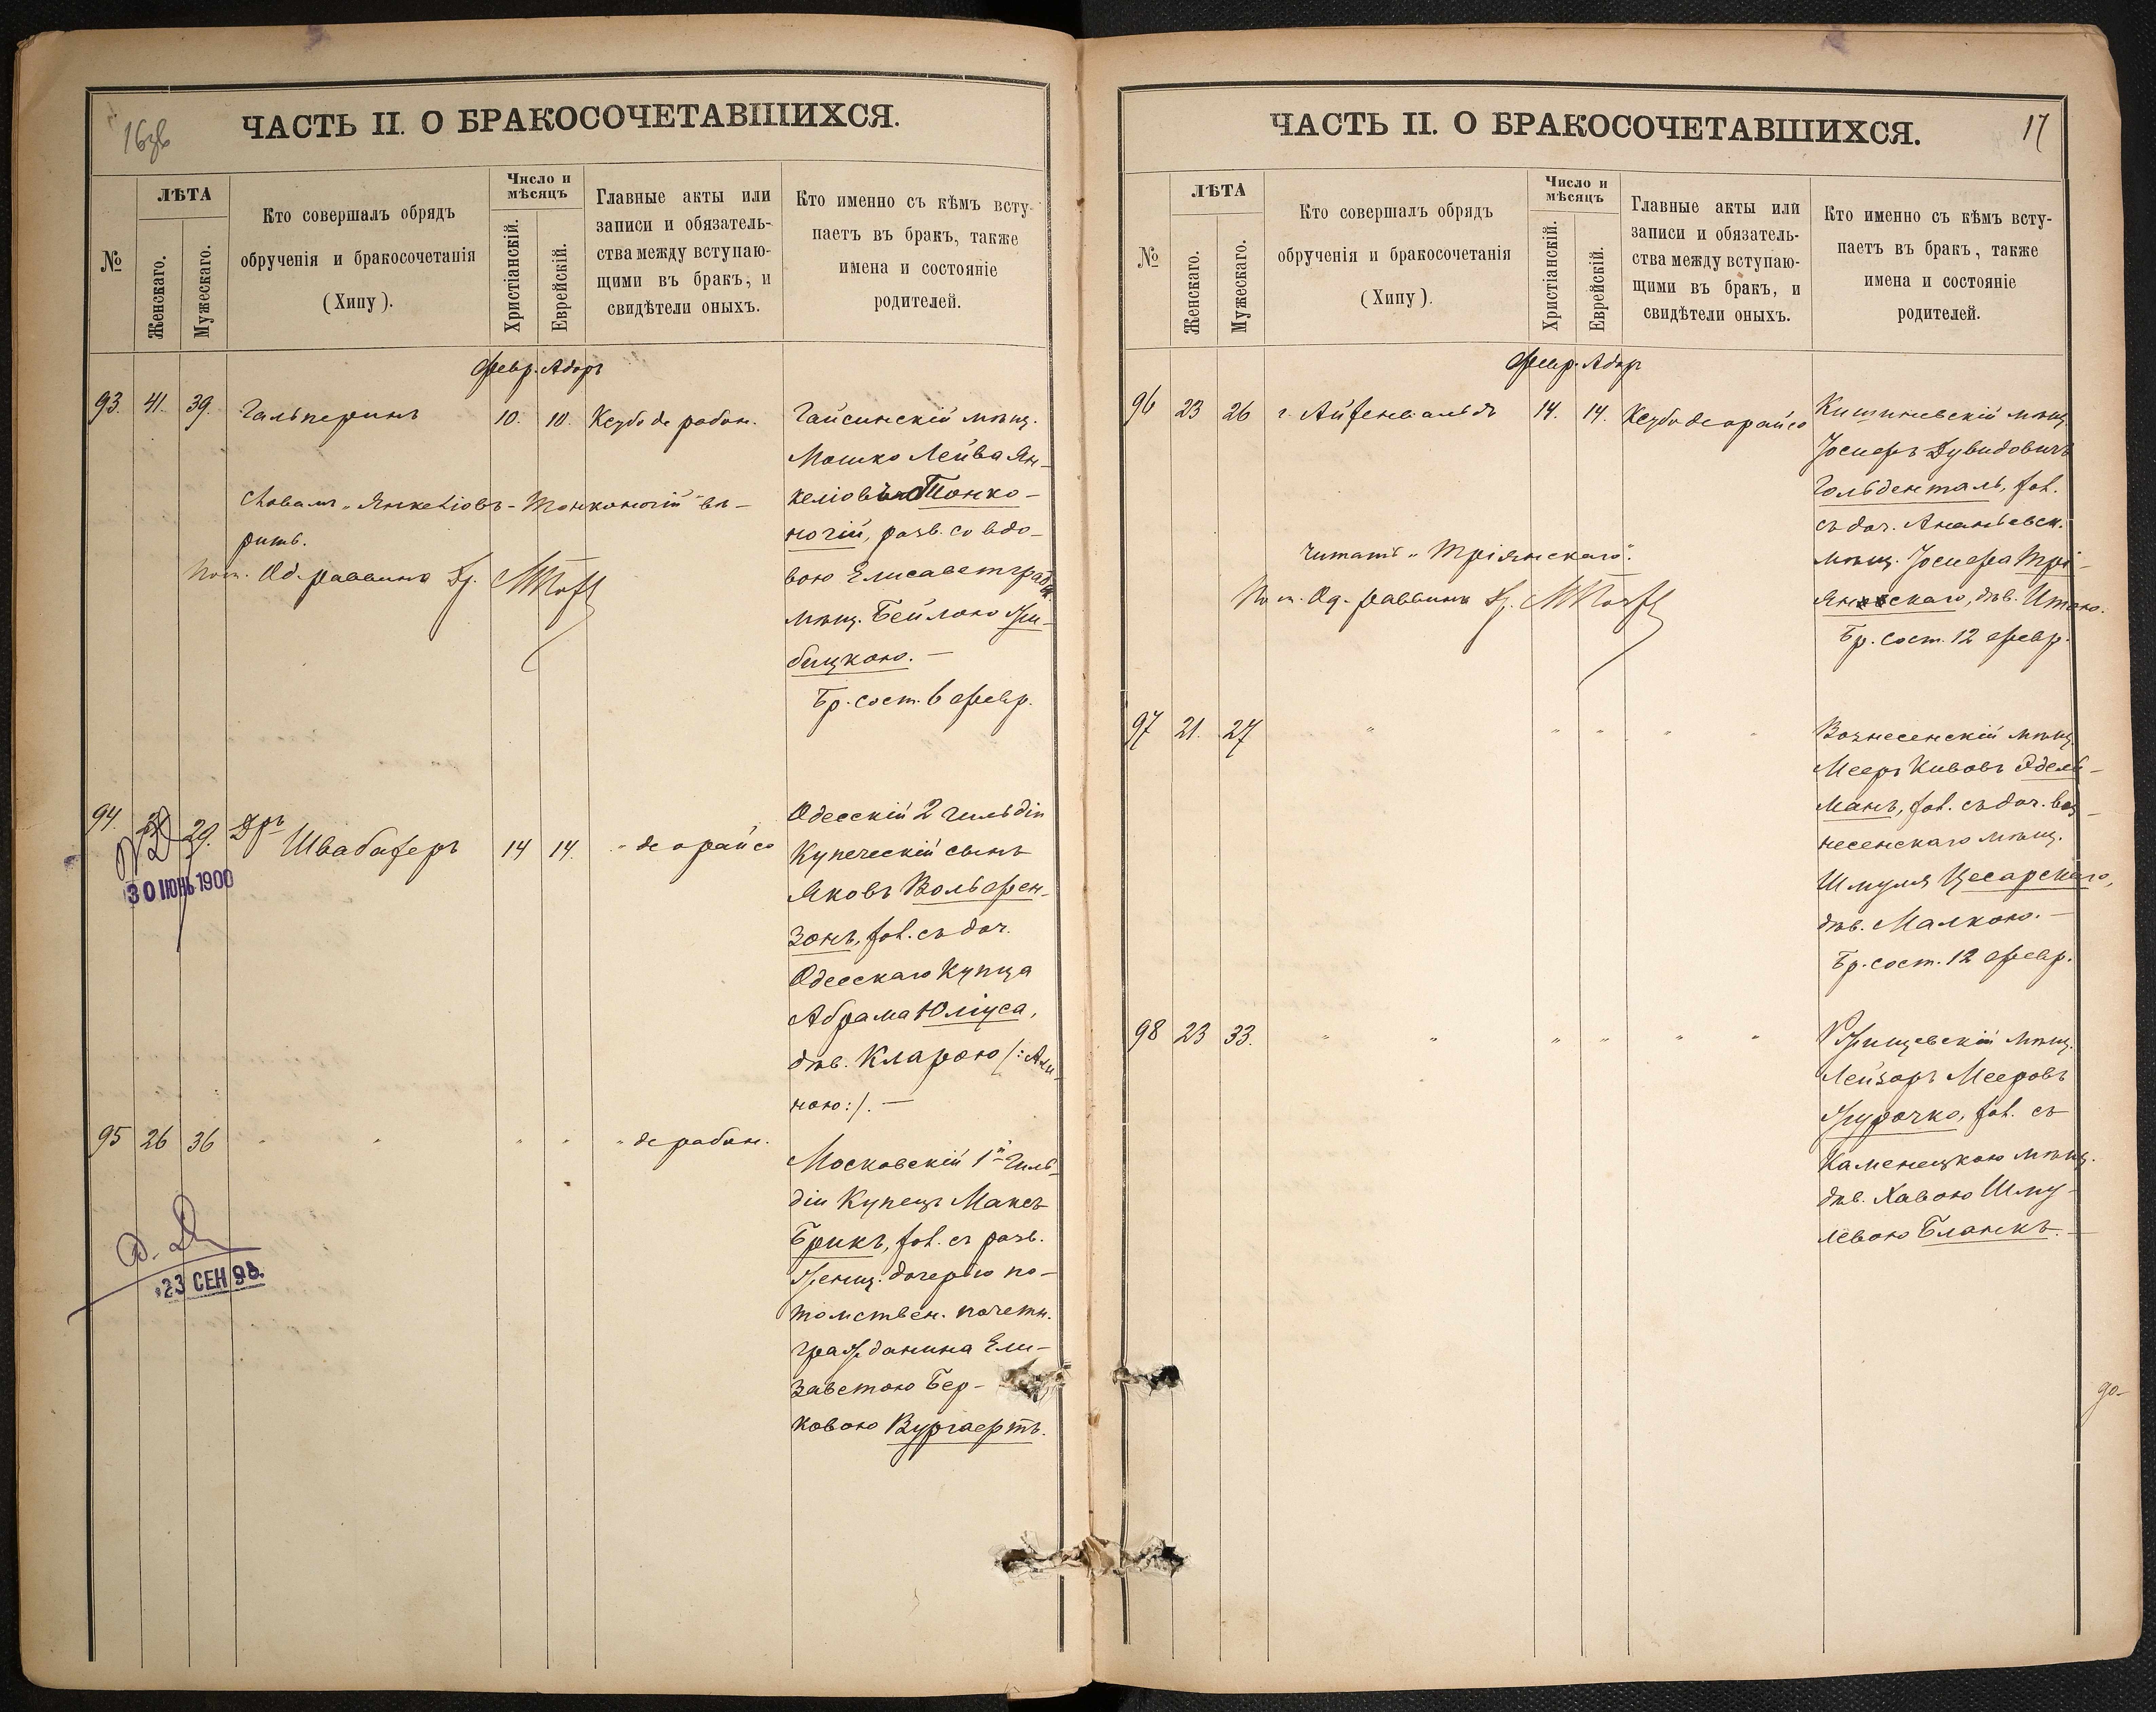 16об
ЧАСТЬ II. О БРАКОСОЧЕТАВШИХСЯ.
№
ЛѢТА
Женскаго.
Мужескаго.
Кто совершалъ обрядъ
обрученія и бракосочетанія
(Хипу).
Число и
мѣсяцъ
Христіанскій.
Еврейскій.
Главные акты или
записи и обязатель-
ства между вступаю-
щими въ бракъ, и
свидѣтели оныхъ.
Кто именно съ кѣмъ всту-
паетъ въ бракъ, также
имена и состояніе
родителей.
Февр. Адоръ
93. 41. 39. Гальперинъ 10. 10. Ксубо де рабон.
Гайсинскій мѣщ.
Мошко Лейба Ян-
келіовъ Тонко-
ногій, разв. со вдо-
вою Елисаветград.
мѣщ. Бейлою
бицкою. —
Бр. сост. 6 февр.
Словамъ „Янкеліовъ-Тонконогій" вѣ-
рить.
Пом. Од. раввина Др.
94. 29. Дръ Швабахеръ 14 14. " де орайсо
30 ІЮНЬ 1900
Одесскій 2 гильдіи
Купеческій сынъ
Яковъ Вольфен-
зонъ, хол. съ доч.
Одесскаго Купца
Абрама Юліуса,
дѣв. Кларою /:Али-
ною:/. —
95 26 36 " " " " " де рабон.
23 СЕН 98.
Московскій 1й Гиль-
діи Купецъ Максъ
Брикъ, хол. съ разв.
женщ. дочерью по-
томствен. почетн.
гражданина Ели-
заветою Бер-
ковою Вургафтъ.
17
ЧАСТЬ II. О БРАКОСОЧЕТАВШИХСЯ.
№
ЛѢТА
Женскаго.
Мужескаго.
Кто совершалъ обрядъ
обрученія и бракосочетанія
(Хипу).
Число и
мѣсяцъ
Христіанскій.
Еврейскій.
Главные акты или
записи и обязатель-
ства между вступаю-
щими въ бракъ, и
свидѣтели оныхъ.
Кто именно съ кѣмъ всту-
паетъ въ бракъ, также
имена и состояніе
родителей.
Февр. Адар
96 23 26 г. Айзенвальдъ 14. 14. Ксубо де орайсо
Кишиневскій мѣщ.
Іосифъ Дувидовичъ
Гольденталь, хол.
съ доч. Ананьевск.
мѣщ. Іосифа Трі-
янскаго, дѣв. Итою.
Бр. сост. 12 февр.
Читать „Тріянскаго".
Пом. Од. раввина Др.
97 21. 27 " " " " "
Вознесенскій мѣщ.
Мееръ Кивовъ Эдель-
манъ, хол. съ доч. воз-
несенскаго мѣщ.
Шмуля Цесарскаго,
дѣв. Малкою. —
Бр. сост. 12 февр.
98 23 33. " " " " " "
Ржищевскій мѣщ.
Лейзоръ Мееровъ
Журочко, хол. съ
Каменецкою мѣщ.
дѣв. Хавою Шму-
левою Бланкъ. —
до-